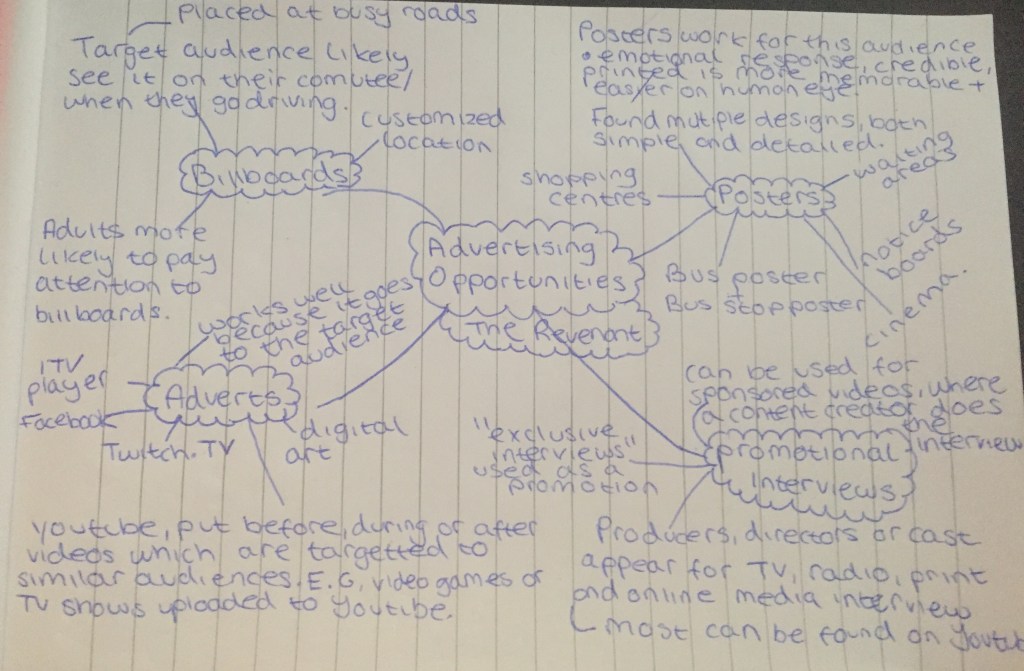 Placed at busy roads
Target audience likely
see it on their comutee/
when they go driving.
customized
location
Billboards
Adults more
likely to pay
attention to
billboards.
Posters work for this audience
• emotional response, credible,
printed is more memorable +
easier on human eye
Found mutiple designs, both
simple and detailed.
waiting
areas
shopping
centres
Posters
notice
boards
Bus poster
Bus stop poster
cinema.
Advertising
Opportunities
The Revenant
works well
because it goes
to the target
audience
ITV
player
Facebook
Adverts
Twitch.TV
digital
art
youtube, put before, during or after
videos which are targetted to
similar audiences. E.G, video games or
TV shows uploaded to Youtube.
can be used for
sponsored videos, where
a content creator does
the
interview
"exclusive
interviews"
used as a
promotion
promotional
Interviews
Producers, directors or cast
appear for TV, radio, print
and online media interview
most can be found on